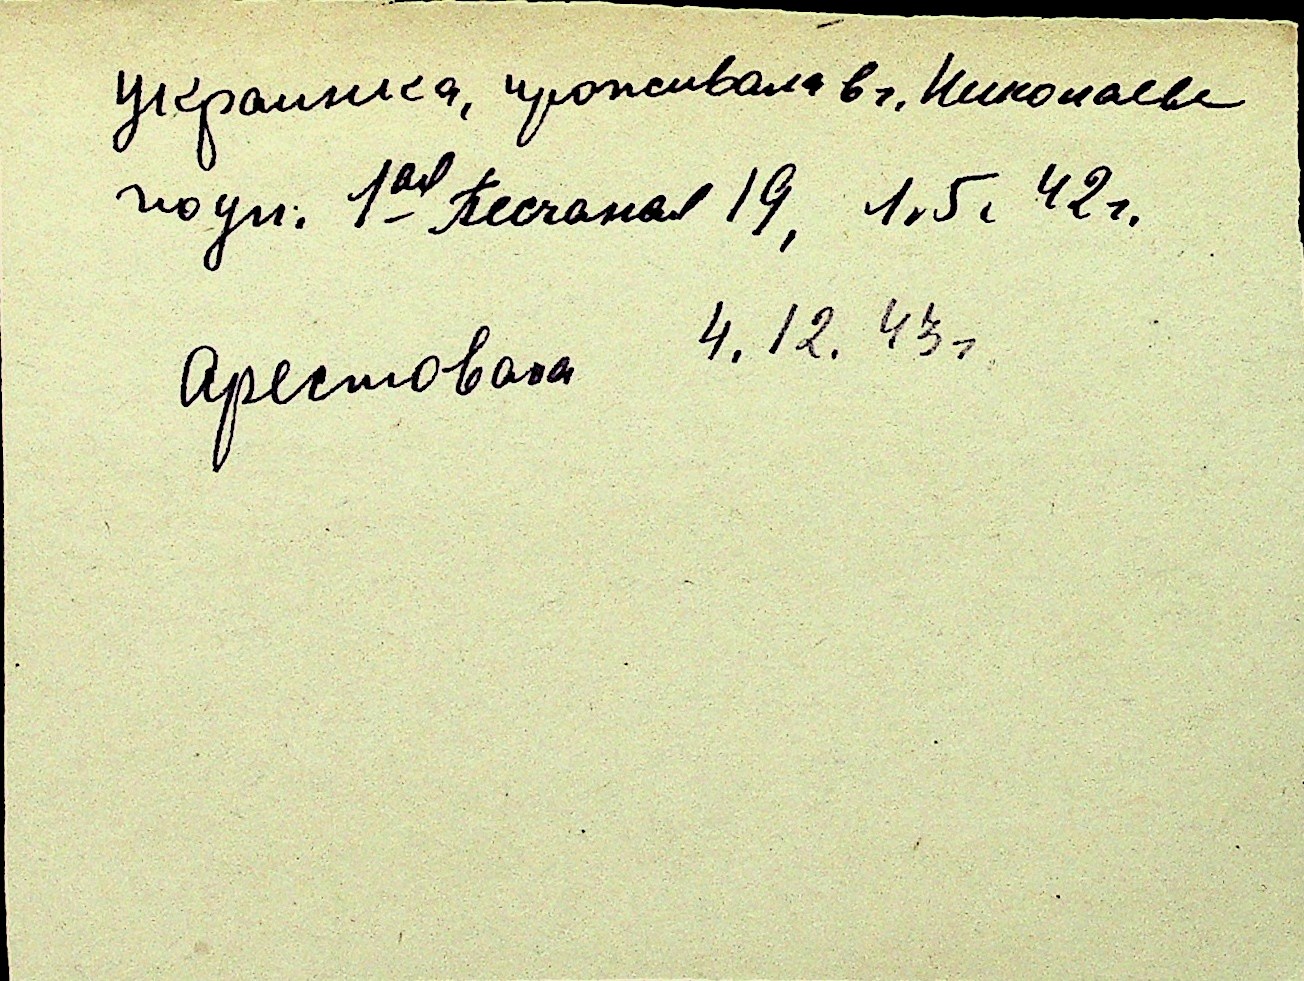 Украинка, проживала в г. Николаеве
по ул. 1ая Песчаная 19, 1.5. 42 г.
Арестована 4. 12. 43 г.